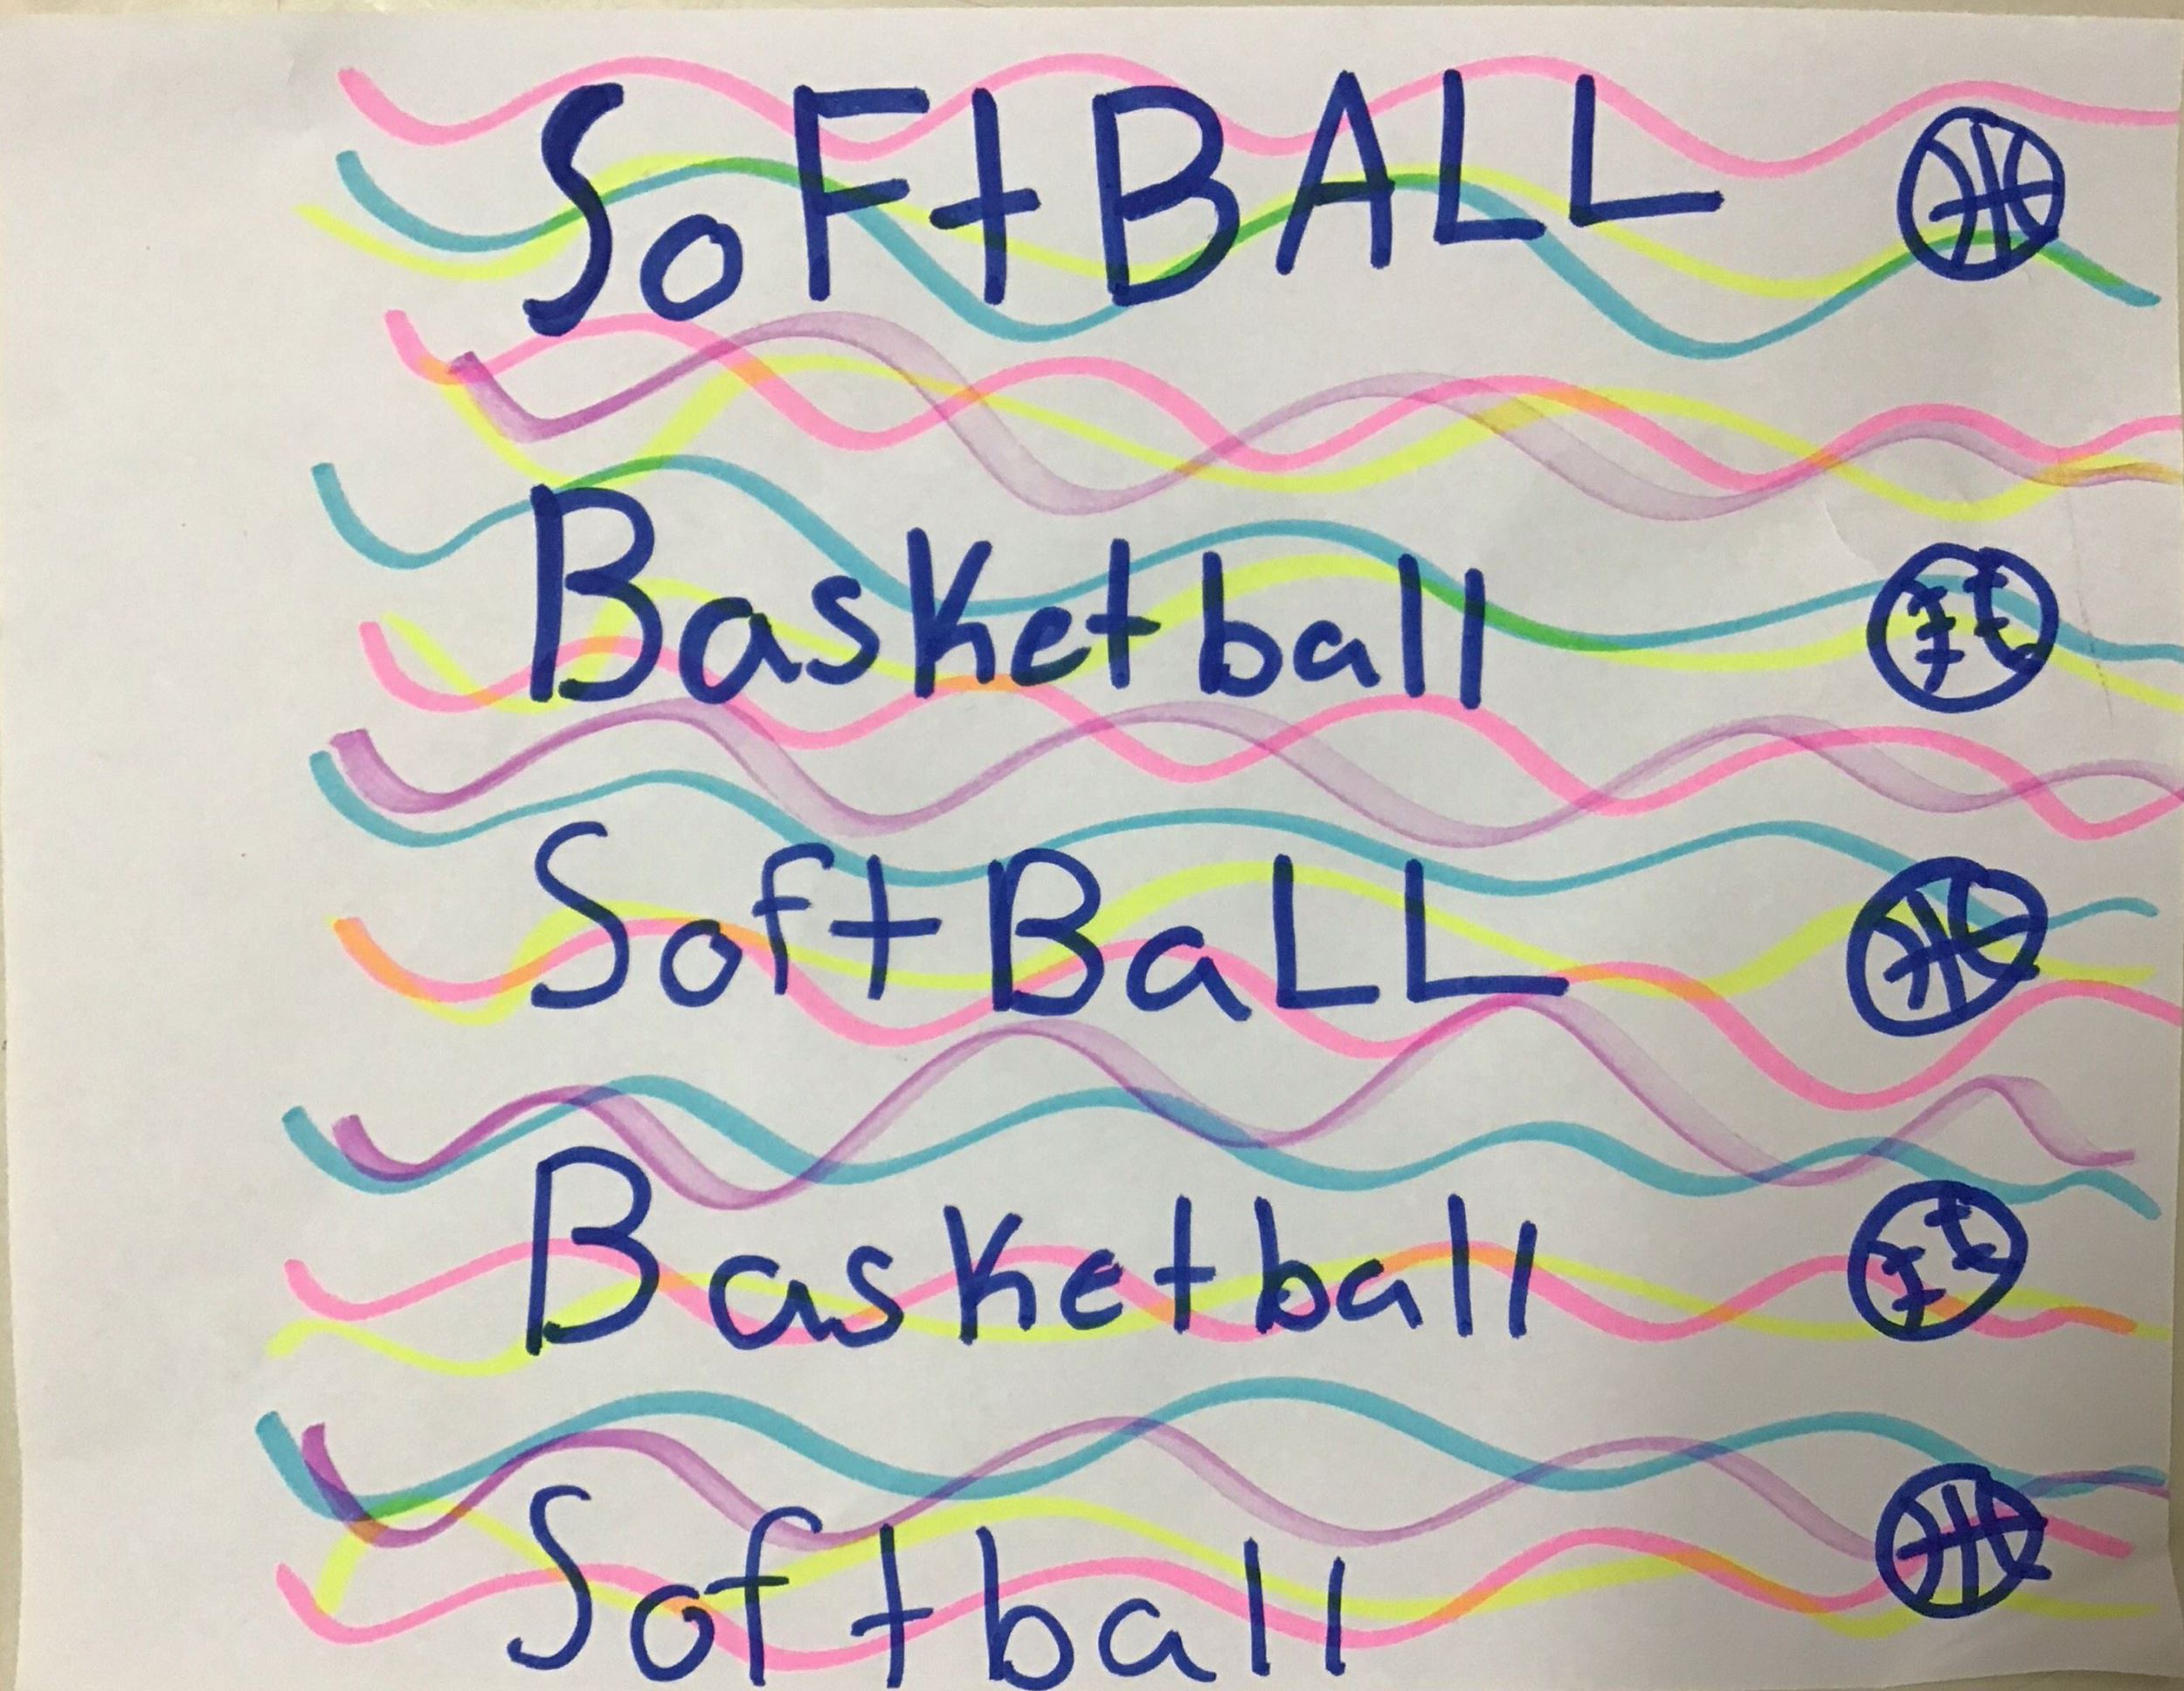 SoFtBALL
Basketball
SoftBaLL
Basketball
Softball